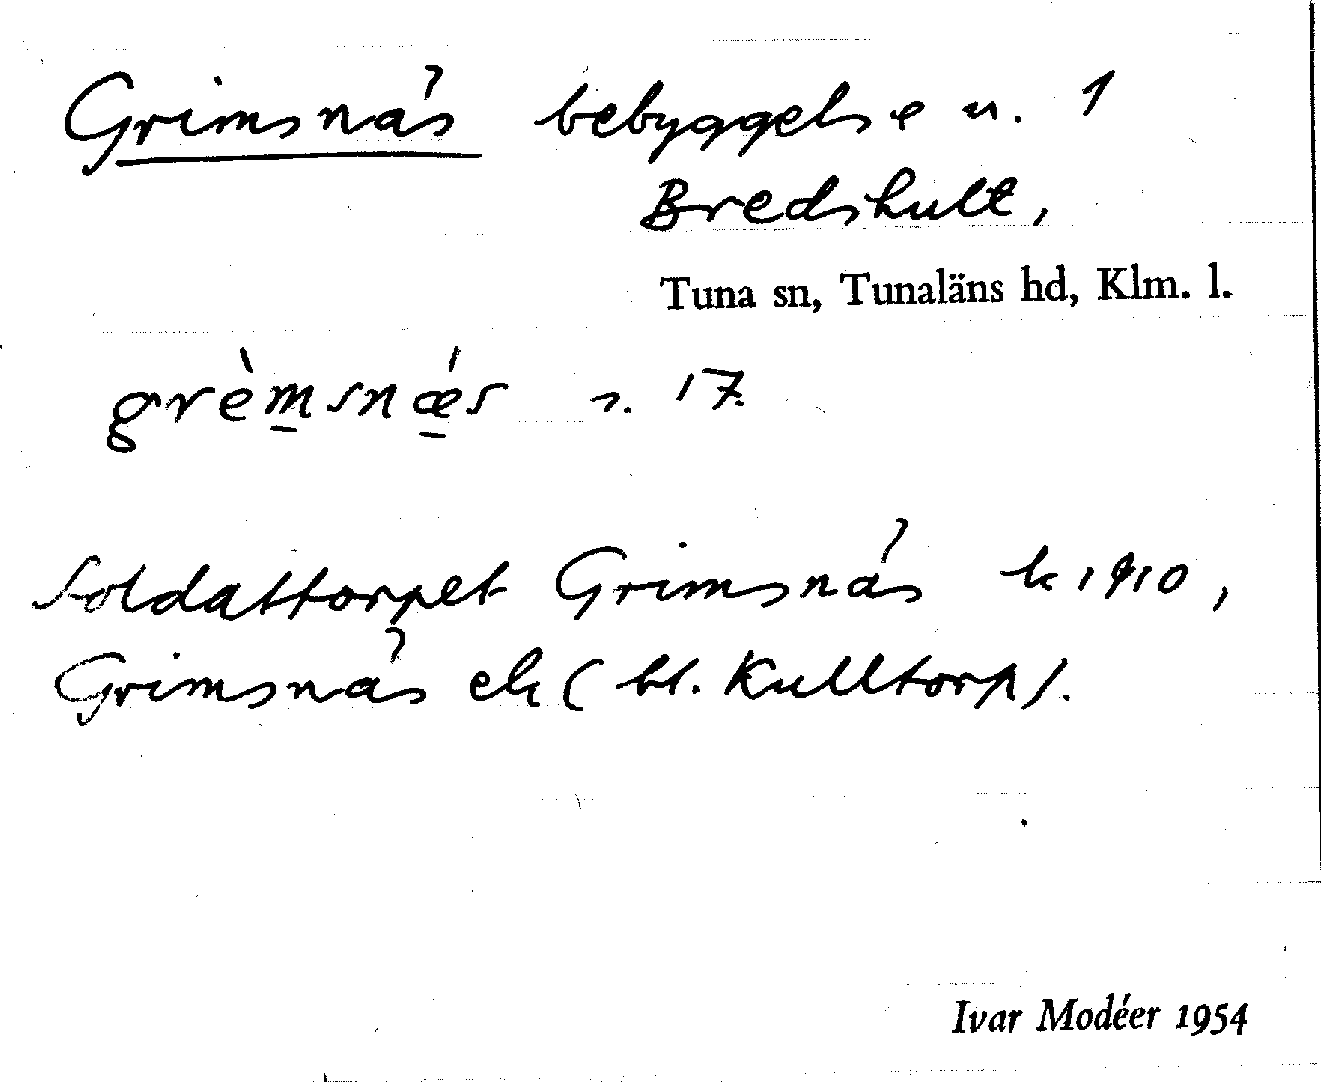 Grimsnäs bebyggelse n. 1
Bredshult,
Tuna sn, Tunaläns hd, Klm. l.
grèmsnǽs s. 17.
Soldattorpet Grimsnäs k 1910,
Grimsnäs ek (bl. Kulltorp).
Ivar Modéer 1954